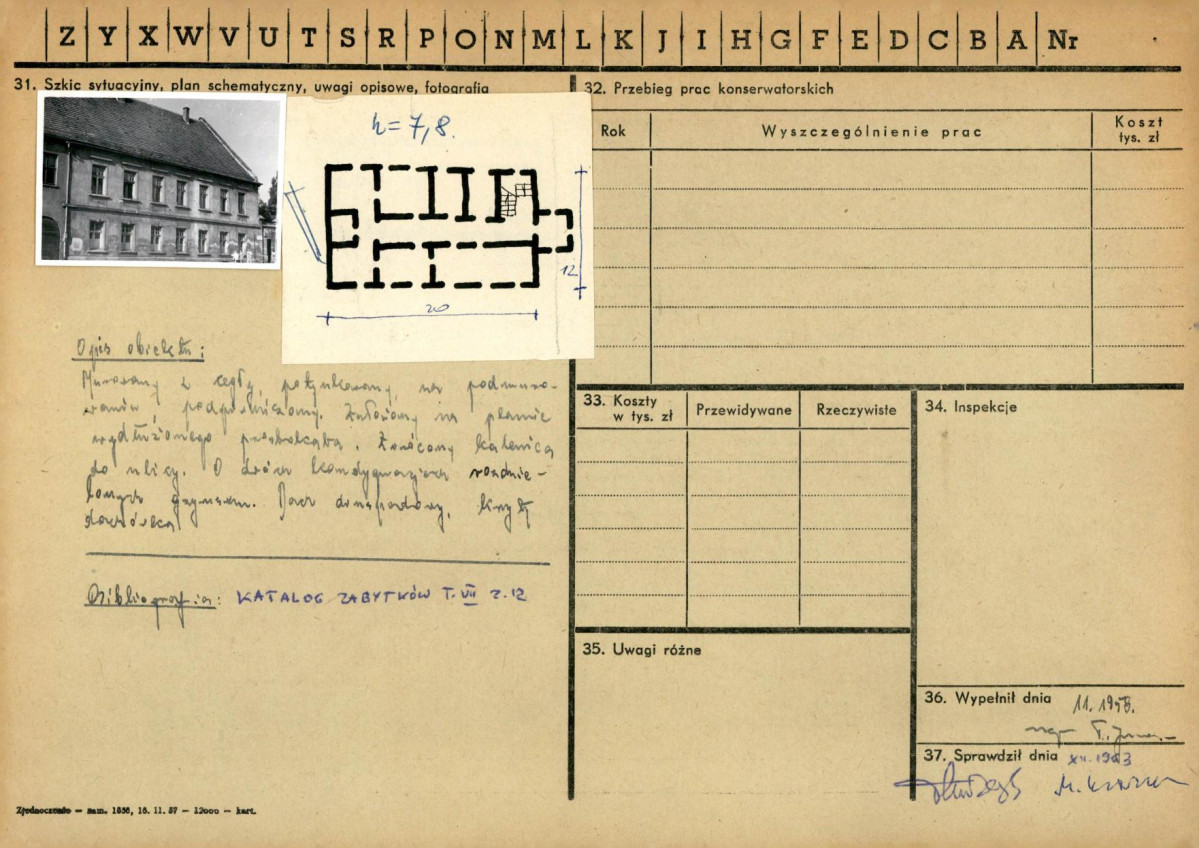 Z Y X W V U T S R P O N M L K J I H G F E D C B A Nr
31. Szkic sytuacyjny, plan schematyczny, uwagi opisowe, fotografia
h=7,8.
12
200
Opis obiektu:
Murowany z cegły, potynkowany, na podmuro-
waniu, podpiwniczony. Założony na planie
wydłużonego prostokąta. Zwrócony kalenicą
do ulicy. O dwóch kondygnacjach rozdzie-
lonych gzymsem. Dach dwuspadowy, kryty
dachówką.
Bibliografia: KATALOG ZABYTKÓW T. VII z. 12
32. Przebieg prac konserwatorskich
Rok
Wyszczególnienie prac
Koszt
tys. zł
33. Koszty
w tys. zł
Przewidywane
Rzeczywiste
34. Inspekcje
35. Uwagi różne
36. Wypełnił dnia 11.1958.
mgr
37. Sprawdził dnia XII.1963
Zjednoczenie — zam. 1856, 16. 11. 57 — 12000 — kart.